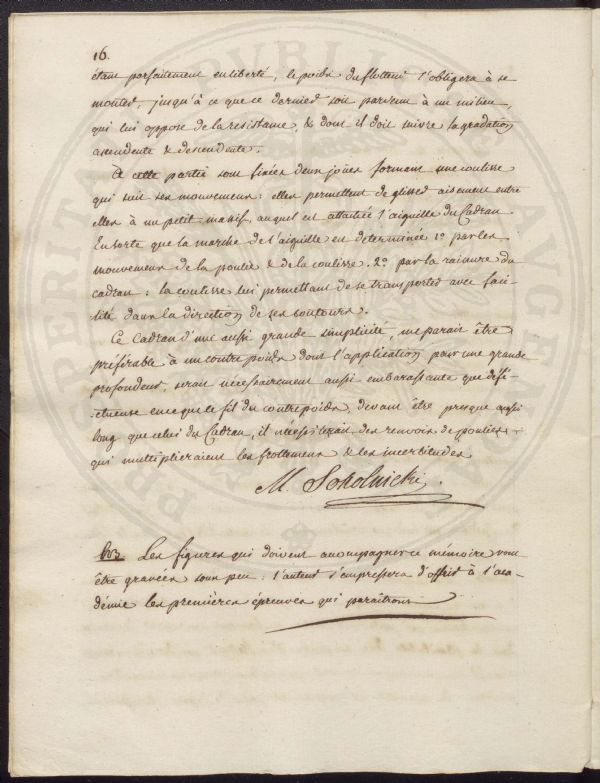 16.
étant parfaitement en liberté, le poids du flotteur l'obligera à se
monter, jusqu'à ce que ce dernier soit parvenu à un milieu,
qui lui oppose de la resistance, & dont il doit suivre la gradation
ascendente & descendente.
A cette partie sont fixées deux joües formant une coulisse
qui suit ses mouvemens: elles permettent de glisser aisement entre
elles à un petit massif, auquel est attachée l'aiguille du Cadran.
Ensorte que la marche de l'aiguille est determinée 1.º par les
mouvemens de la poulie & de la coulisse. 2.º par la rainure du
cadran: la coulisse lui permettant de se transporter avec faci-
lité dans la direction de ses contours.
Ce Cadran d'une aussi grande simplicité, me parait être
préférable à un contrepoids dont l'application, pour une grande
profondeur, serait nécessairement aussi embarassante que défé-
ctueuse en ce que le fil du contrepoids, devant être presque aussi
long que celui du Cadran, il nécessiterait des renvois de poulies
qui multiplieraient les frottemens & les incertitudes.
M. Sokolnicki.
Les figures qui doivent accompagner ce mémoire vont
être gravées sous peu: l'auteur s'empressera d'offrir à l'aca-
démie les premières épreuves qui paraîtront